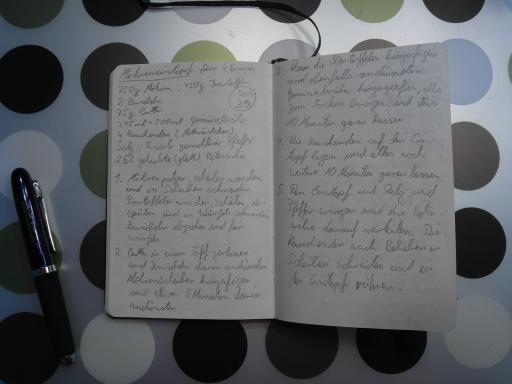 Möhreneintopf für 4 Personen
750g Möhren, 750g Kartoffeln
2 Zwiebeln
75g Butter
375ml - 500ml Gemüsebrühe
4 Rauchenden (Mettwürstchen)
Salz, frisch gemahlener Pfeffer
2 EL gehackte (glatte) Petersilie
1. Möhren putzen, schälen, waschen
und in Scheiben schneiden
Kartoffeln waschen, schälen, ab-
spülen und in Würfel schneiden
Zwiebeln abziehen und fein
würfeln
2. Butter in einem Topf zerlassen
und Zwiebeln darin andünsten
Möhrenscheiben hinzufügen
und etwa 5 Minuten darin
andünsten
3. Dann die Kartoffeln hinzufügen
und ebenfalls andünsten,
Gemüsebrühe hinzugießen, alles
zum Kochen bringen und etwa
10 Minuten garen lassen
4. Die Rauchenden auf den Ein-
topf legen und alles noch
weitere 10 Minuten garen lassen.
5. Den Eintopf mit Salz und
Pfeffer würzen und die Peter-
silie darauf verteilen. Die
Rauchenden nach Belieben in
Scheiben schneiden und in
den Eintopf rühren.